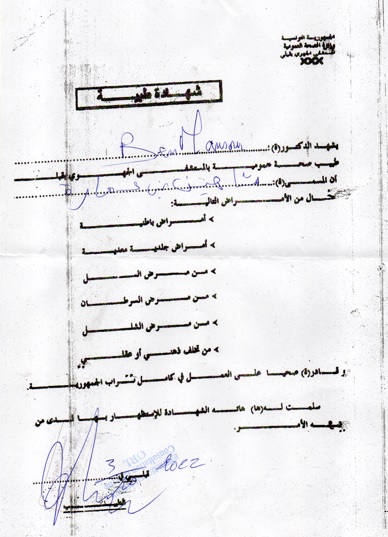 الجمهورية التونسية
وزارة الصحة العمومية
المستشفى الجهوي بقبلي
XXX
شهادة طبية
يشهد الدكتور(ة): Ben Mansour
طبيب صحة عمومية بالمستشفى الجهوي بقبلي
أن المسمى(ة):
خال من الأمراض التالية:
> أمراض باطنية
> أمراض جلدية معدية
> من مرض السل
> من مرض السرطان
> من مرض الشلل
> من تخلف ذهني أو عقلي
و قادر(ة) صحيا على العمل في كامل تراب الجمهورية.
سلمت له(ها) هاته الشهادة للإستظهار بها لدى من
يهمه الأمر.
قبلي في 3 2022
الطبيب